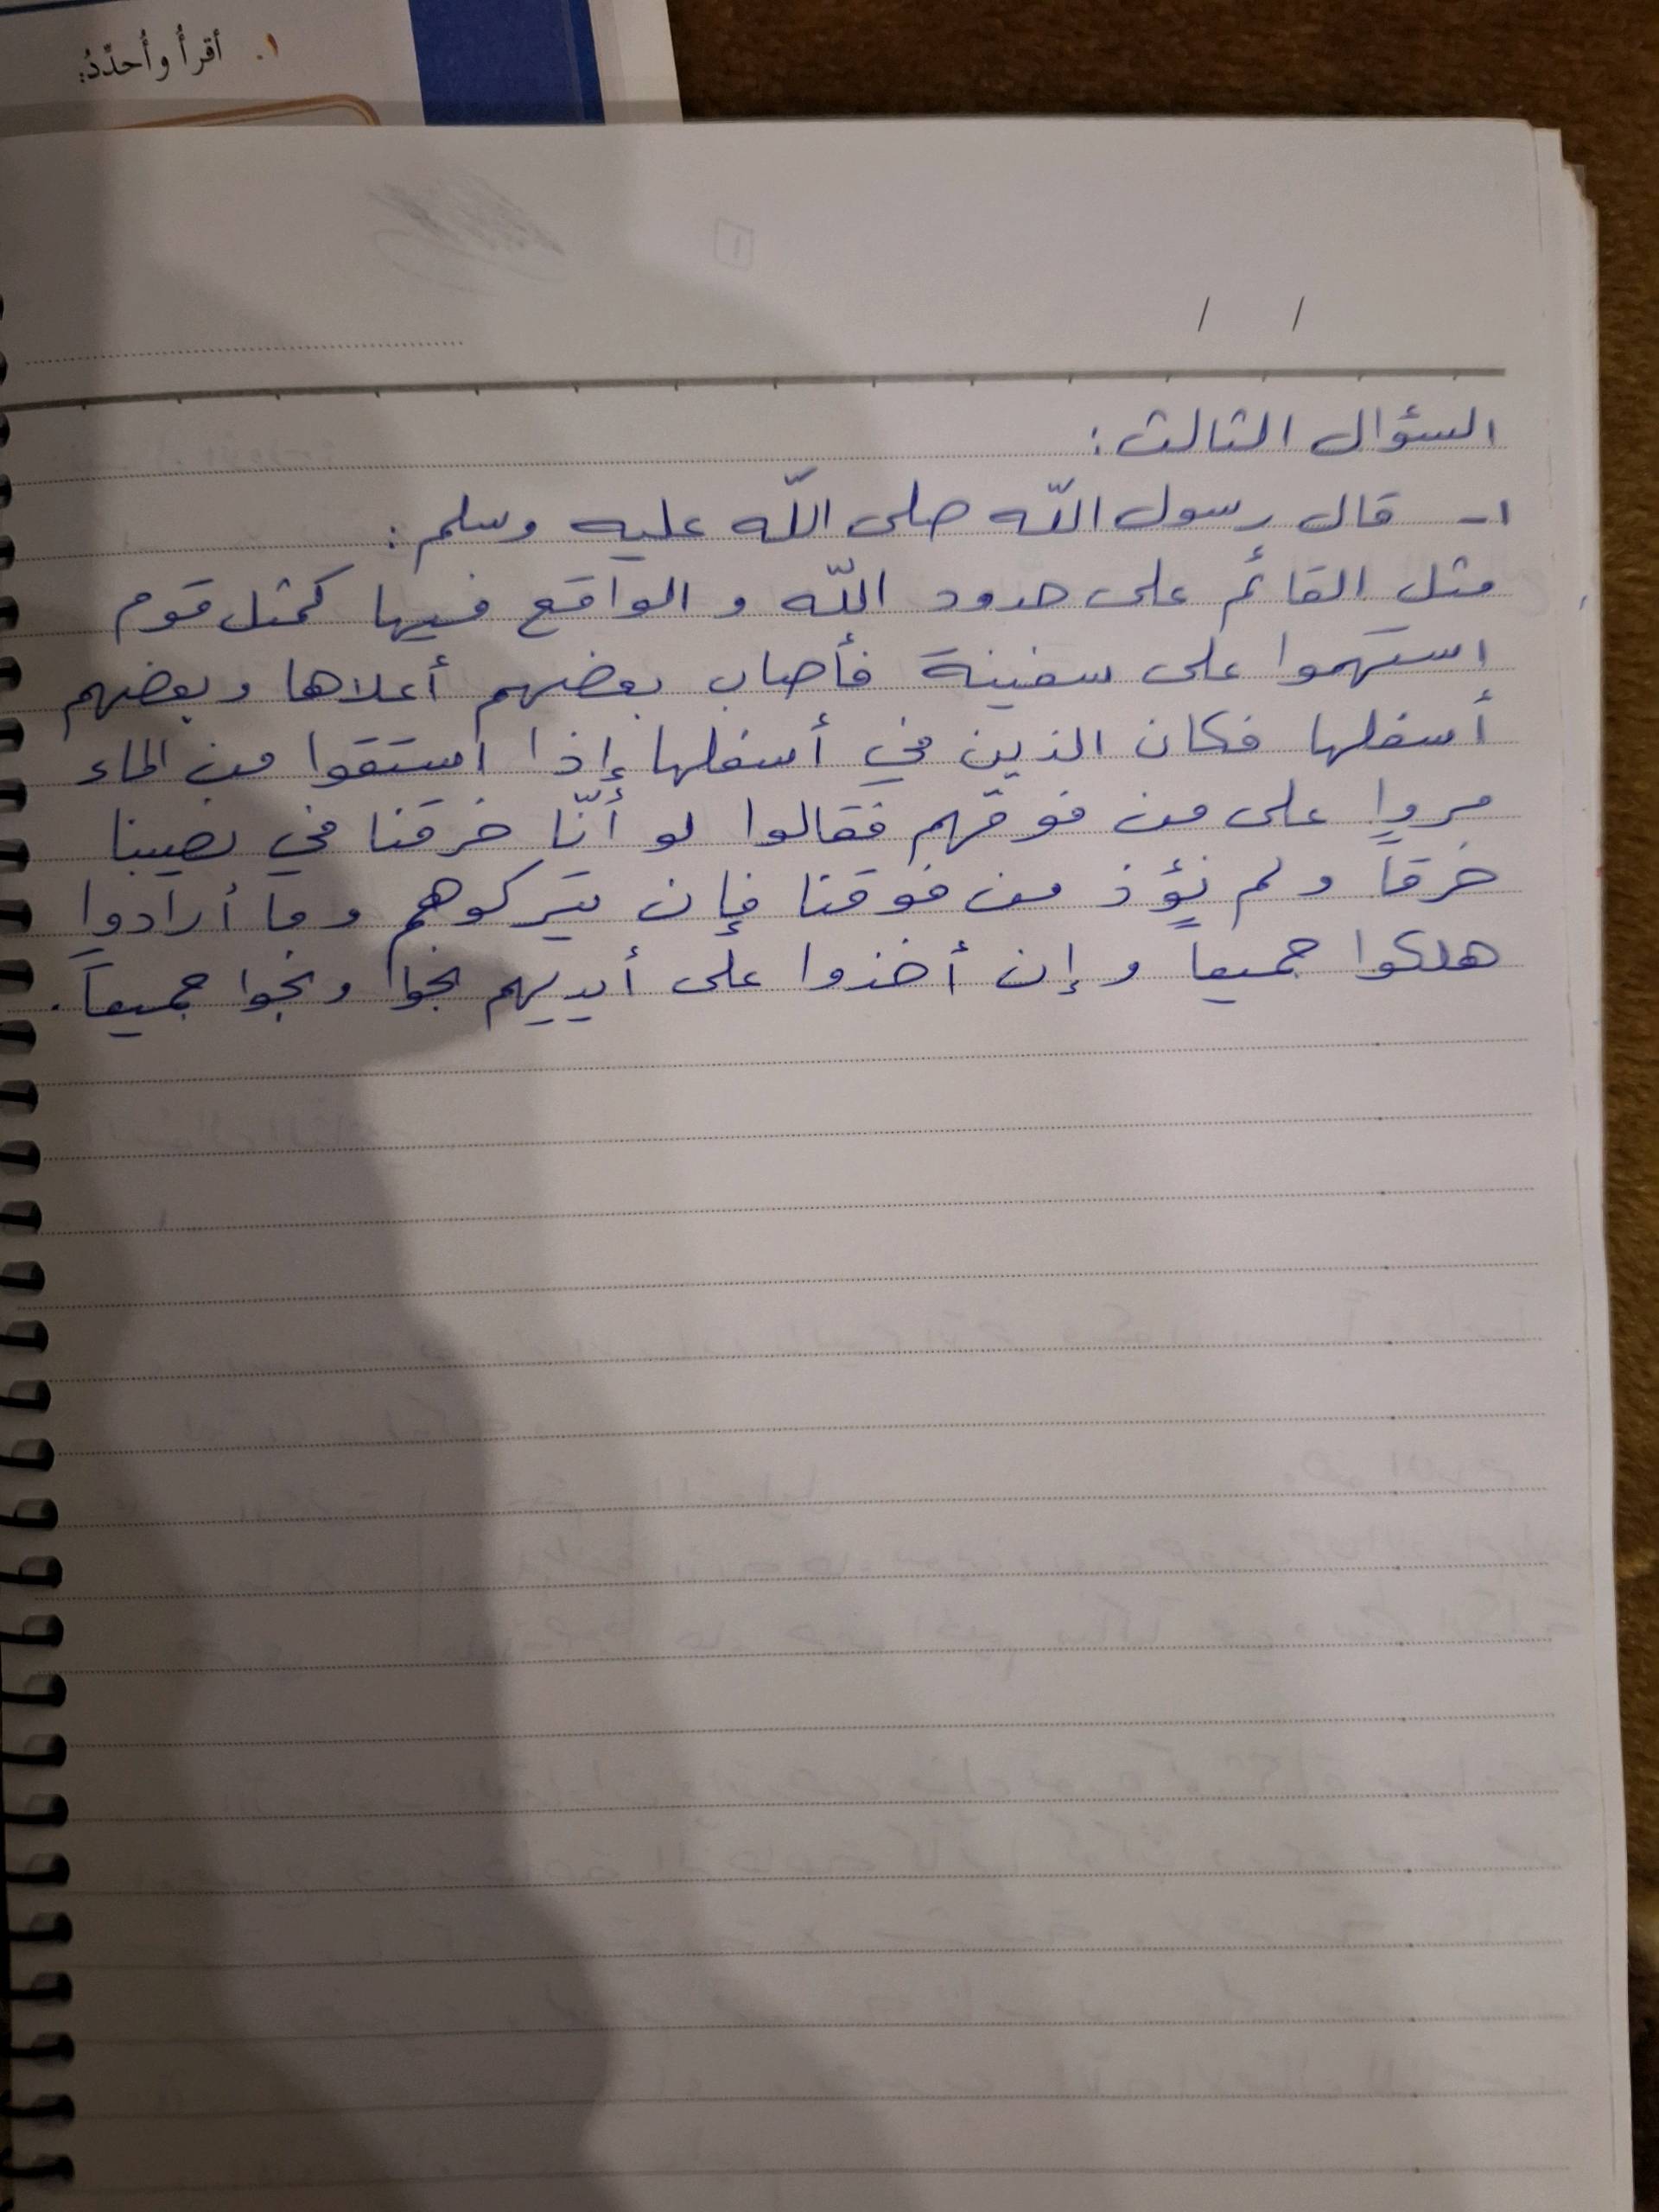 ١. أقرأُ وأُحدِّدُ:
السؤال الثالث:
١- قال رسول اللّه صلى اللّه عليه وسلم:
مثل القائم على حدود اللّه و الواقع فيها كمثل قوم
استهموا على سفينة فأصاب بعضهم أعلاها وبعضهم
أسفلها فكان الذين في أسفلها إذا استقوا من الماء
مروا على من فوقهم فقالوا لو أنّا خرقنا في نصيبنا
خرقاً ولم نؤذ من فوقنا فإن يتركوهم وما أرادوا
هلكوا جميعاً وإن أخذوا على أيديهم نجوا ونجوا جميعاً.